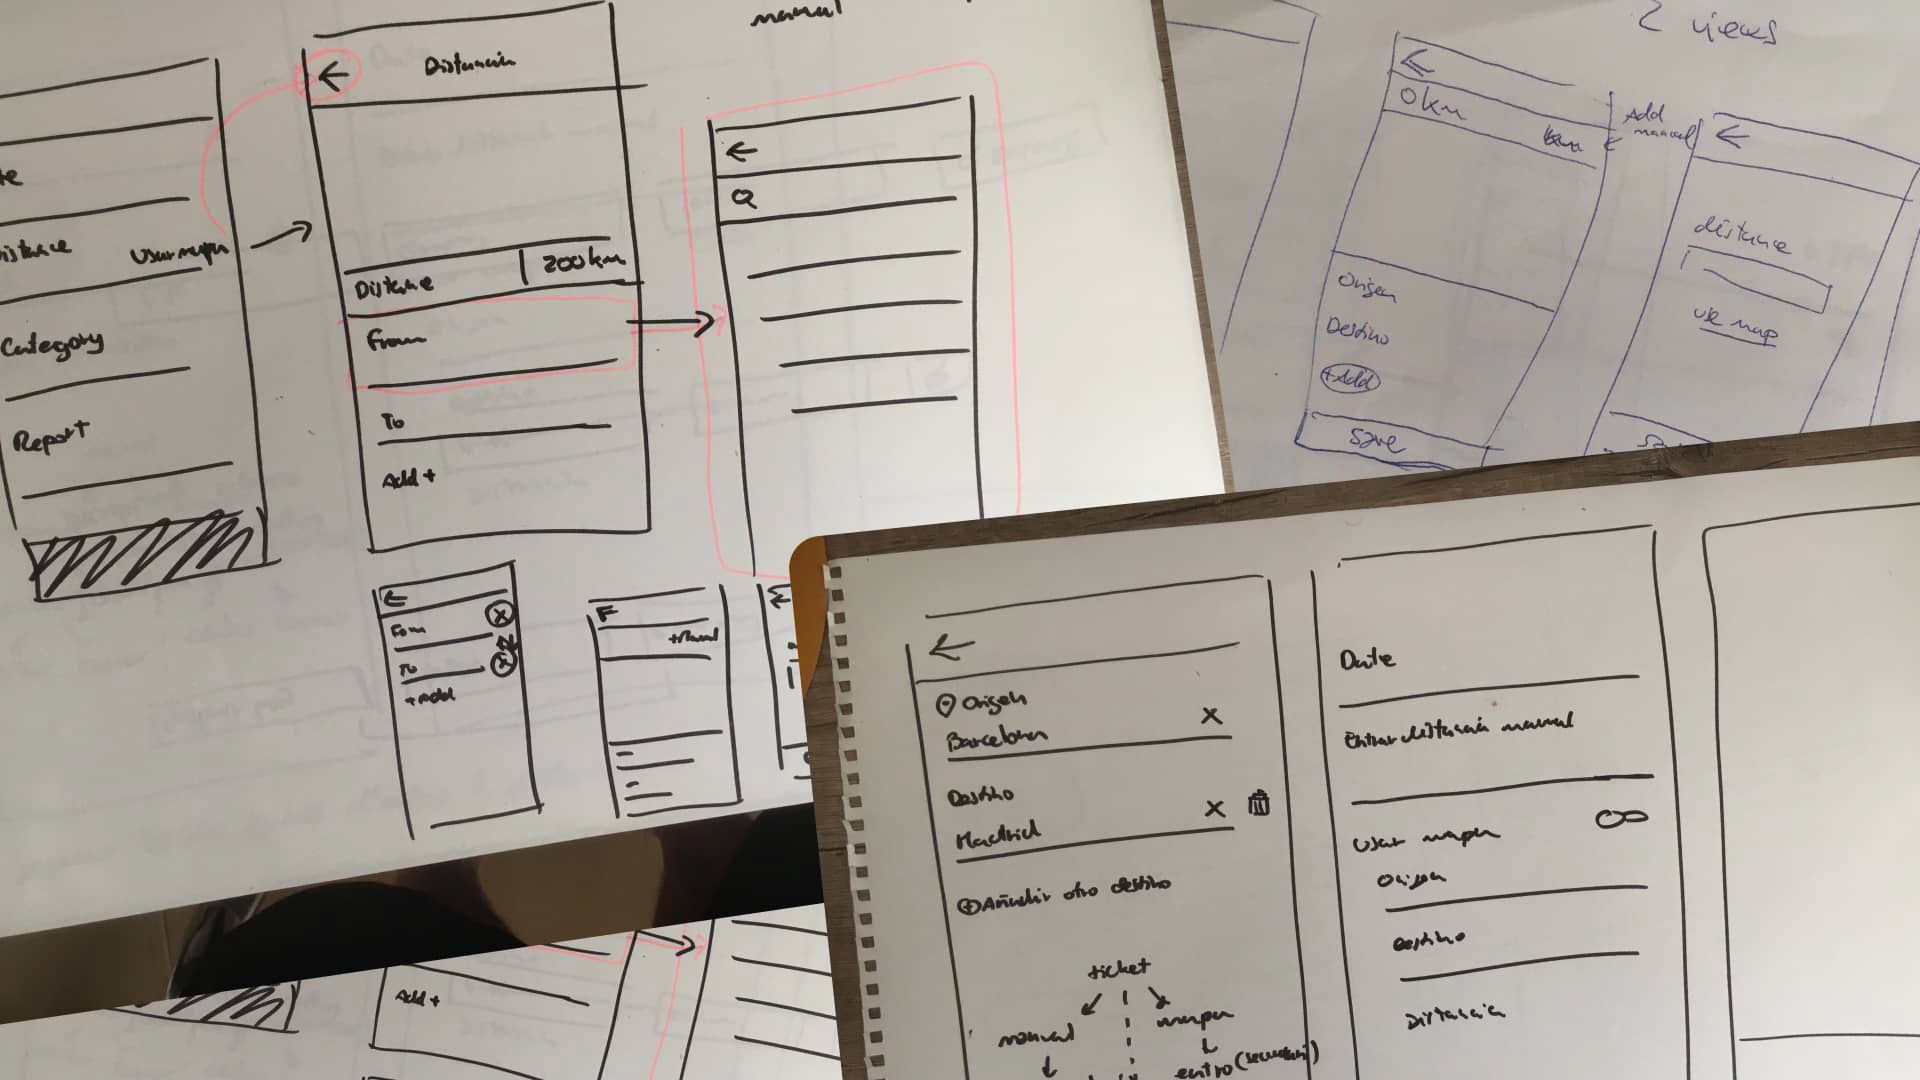 manual
Distancia
Distance
Usar mapa
Category
Report
Distance
200km
From
To
Add +
From
To
+Add
+Manual
Add +
2 views
0 km
Add
manual
Origen
Destino
+Add
save
distance
use map
Origen
Barcelona
Destino
Madrid
Añadir otro destino
ticket
manual
mapa
entro
Date
Entrar distancia manual
Usar mapa
Origen
Destino
Distancia